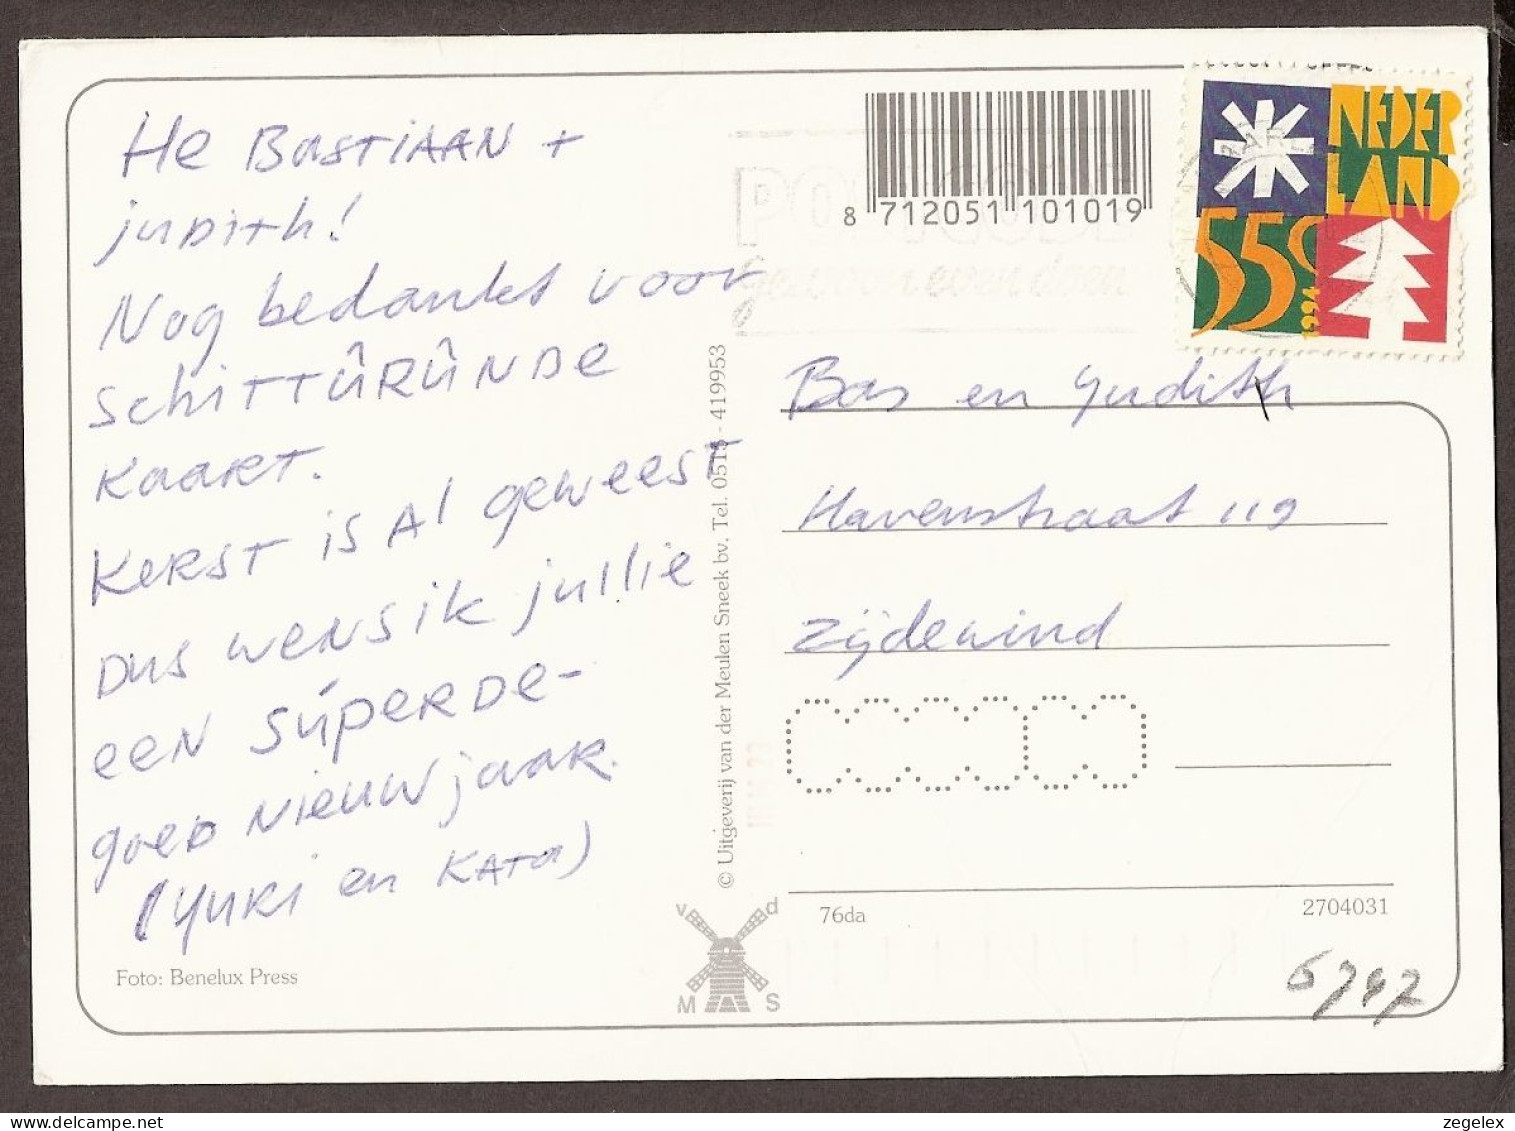 He Bastiaan +
judith!
Nog bedankt voor
schittûrûnde
kaart.
Kerst is al geweest
Dus wens ik jullie
een súperde-
goed nieuwjaar.
(Yuki en Kata)
Foto: Benelux Press
© Uitgeverij van der Meulen Sneek bv, Tel. 0515 - 419953
v d
M S
8 712051 101019
POSTCODE
gewoon even doen
NEDER
LAND
55c
1994
Bas en Judith
Havenstraat 119
Zijdewind
76da
2704031
5747
zegelex